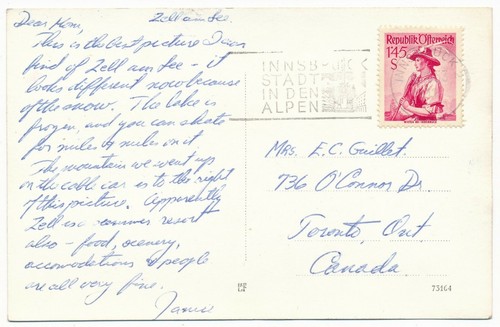 Zell am See.
Dear Mom,
This is the best picture I can
find of Zell am See - it
looks different now because
of the snow. The lake is
frozen, and you can skate
for miles & miles on it.
The mountain we went up
on the cable car is to the right
of this picture. Apparently
Zell is a summer resort
also - food, scenery,
accomodations & people
are all very fine.
INNSBRUCK
STADT
IN DEN
ALPEN
Republik Österreich
1'45
S
Mrs. E.C. Guillet
736 O'Connor Dr.
Toronto, Ont
Canada
73164